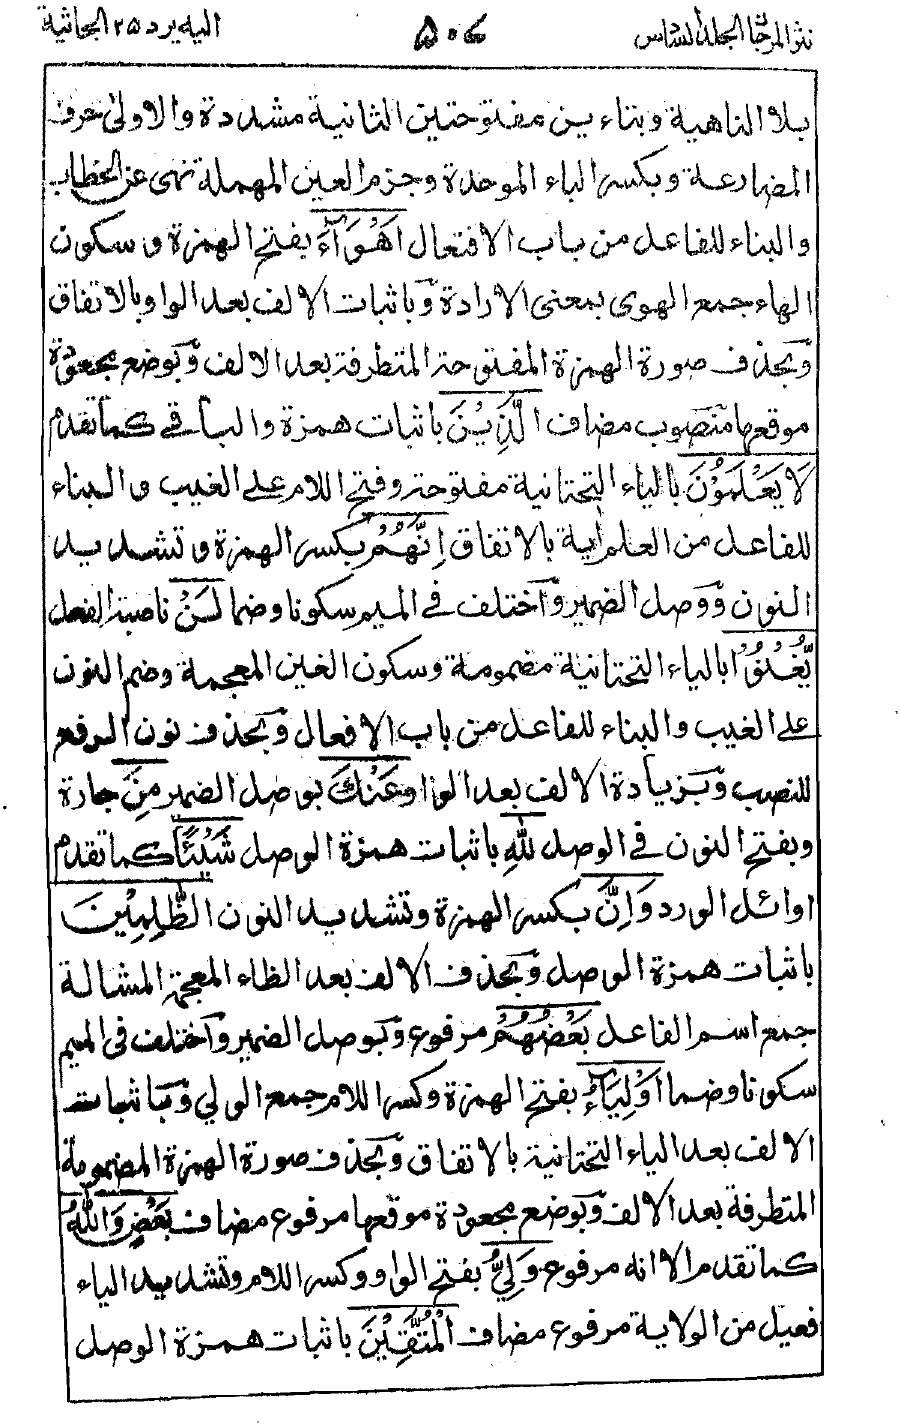 نثر المرجان المجلد السادس ٥٠٧ اليه يرد ٢٥ الجاثية
بلا الناهية وبتاءين مفتوحتين الثانية مشددة والاولى حرف
المضارعة وبكسر الباء الموحدة وجزم العين المهملة نهى عن الخطاب
والبناء للفاعل من باب الافتعال اَهْوَآءَ بفتح الهمزة وسكون
الهاء جمع الهوى بمعنى الارادة وباثبات الالف بعد الواو بالاتفاق
وبحذف صورة الهمزة المفتوحة المتطرفة بعد الالف وبوضع مجعودة
موقعها منصوب مضاف الَّذِيْنَ باثبات همزة والباقي كما تقدم
لَا يَعْلَمُوْنَ بالياء التحتانية مفتوحة وفتح اللام على الغيب والبناء
للفاعل من العلم اية بالاتفاق اِنَّهُمْ بكسر الهمزة وتشديد
النون ووصل الضمير واختلف في الميم سكونا وضما لَنْ ناصبة الفعل
يُّغْنُوْا بالياء التحتانية مضمومة وسكون الغين المعجمة وضم النون
على الغيب والبناء للفاعل من باب الافعال وبحذف نون الرفع
للنصب وبزيادة الالف بعد الواو عَنْكَ بوصل الضمير مِنَ جارة
وبفتح النون في الوصل للهِ باثبات همزة الوصل شَيْئًا كما تقدم
اوائل الورد وَاِنَّ بكسر الهمزة وتشديد النون الظّٰلِمِيْنَ
باثبات همزة الوصل وبحذف الالف بعد الظاء المعجمة المشالة
جمع اسم الفاعل بَعْضُهُمْ مرفوع وبوصل الضمير واختلف في الميم
سكونا وضما اَوْلِيَآءُ بفتح الهمزة وكسر اللام جمع الولي وباثبات
الالف بعد الياء التحتانية بالاتفاق وبحذف صورة الهمزة المضمومة
المتطرفة بعد الالف وبوضع مجعودة موقعها مرفوع مضاف بَعْضٍ وَاللهُ
كما تقدم الا انه مرفوع وَلِيُّ بفتح الواو وكسر اللام وتشديد الياء
فعيل من الولاية مرفوع مضاف الْمُتَّقِيْنَ باثبات همزة الوصل